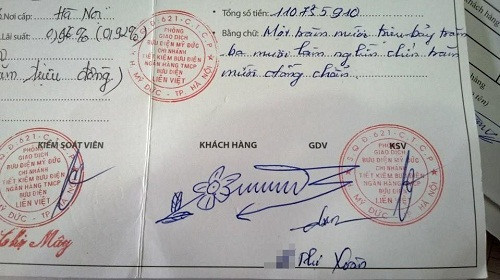 Nơi cấp: Hà Nội
Lãi suất: 0,96% (0,92%)
triệu đồng)
• Tổng số tiền: 110735910
• Bằng chữ: Một trăm mười triệu bảy trăm
ba mươi lăm nghìn chín trăm
mười đồng chẵn.
S.Q.Đ:621-C.T.C.P
PHÒNG
GIAO DỊCH
BƯU ĐIỆN MỸ ĐỨC
CHI NHÁNH
TIẾT KIỆM BƯU ĐIỆN
NGÂN HÀNG TMCP
BƯU ĐIỆN
LIÊN VIỆT
H. MỸ ĐỨC - TP. HÀ NỘI
KIỂM SOÁT VIÊN
KHÁCH HÀNG
GDV
KSV
.Q.Đ:621-C.T.C.P
PHÒNG
GIAO DỊCH
BƯU ĐIỆN MỸ ĐỨC
CHI NHÁNH
TIẾT KIỆM BƯU ĐIỆN
NGÂN HÀNG TMCP
BƯU ĐIỆN
LIÊN VIỆT
MỸ ĐỨC - TP. HÀ NỘI
S.Q.Đ:621-C.T.C.P
PHÒNG
GIAO DỊCH
BƯU ĐIỆN MỸ ĐỨC
CHI NHÁNH
TIẾT KIỆM BƯU ĐIỆN
NGÂN HÀNG TMCP
BƯU ĐIỆN
LIÊN VIỆT
MỸ ĐỨC - TP. HÀ NỘI
Thị Mây
Xoan